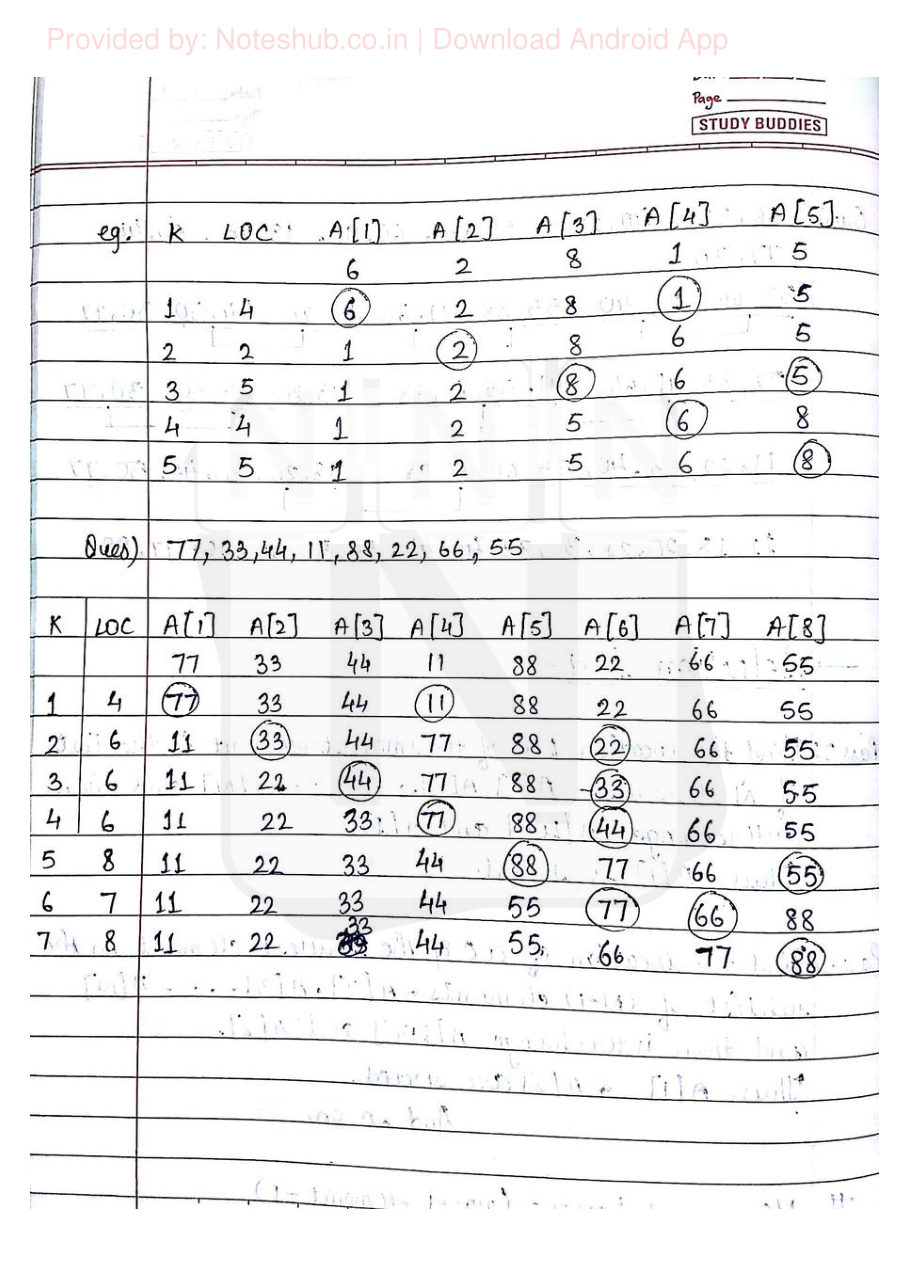 Provided by: Noteshub.co.in | Download Android App
Page
STUDY BUDDIES
eg: K LOC A[1] A[2] A[3] A[4] A[5]
6 2 8 1 5
1 4 6 2 8 1 5
2 2 1 2 8 6 5
3 5 1 2 8 6 5
4 4 1 2 5 6 8
5 5 1 2 5 6 8
Ques) 77, 33, 44, 11, 88, 22, 66, 55
K LOC A[1] A[2] A[3] A[4] A[5] A[6] A[7] A[8]
77 33 44 11 88 22 66 55
1 4 77 33 44 11 88 22 66 55
2 6 11 33 44 77 88 22 66 55
3 6 11 22 44 77 88 33 66 55
4 6 11 22 33 77 88 44 66 55
5 8 11 22 33 44 88 77 66 55
6 7 11 22 33 44 55 77 66 88
7 8 11 22 33 44 55 66 77 88